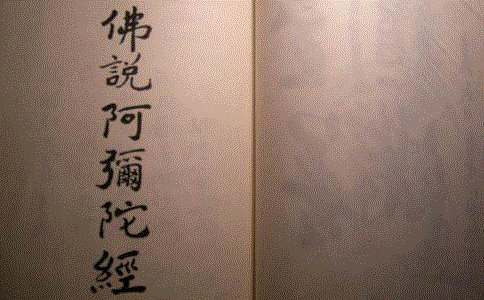 佛説阿彌陀經